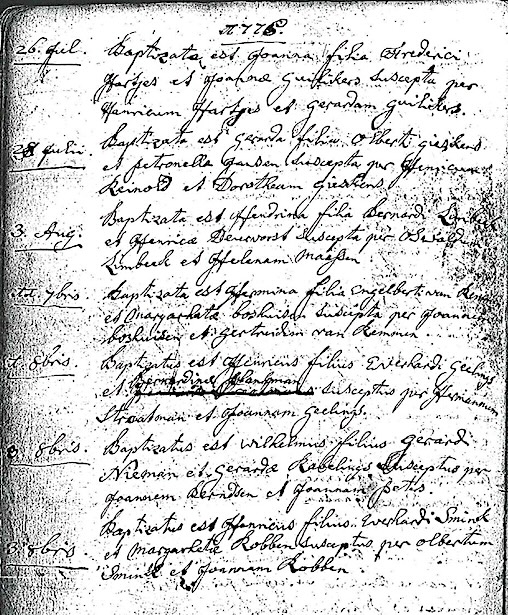 1776.
26. Jul. Baptizata est Joanna filia Frederici
Hartjes et Joannæ Guilikers suscepta per
Henricum Hartjes et Gerardam Guilikers.
28 Julii. Baptizata est Gerarda filia Olberti Gieskens
et Petronella Jansen suscepta per Henricum
Reinold et Dorotheam Gieskens
3. Aug. Baptizata est Hendrina filia Bernardi Limbeek
et Henricæ Deurvorst suscepta per Oswald
Limbeek et Helenam Maassen
7bris. Baptizata est Hermina filia Engelberti van
et Margarhetæ boshuisen suscepta per Joannem
boshuisen et Gertrudim van Remmen.
8bris. Baptizatus est Henricus filius Everhardi Geelings
et Bernardinæ Plankman susceptus per Hermannum
Straatman et Joannam Geelings.
8bris. Baptizatus est Wilhelmus filius Gerardi
Nieman et Gerardæ Rabelings susceptus per
Joannem Berndsen et Joannam
8bris Baptizatus est Henricus filius Everhardi Smink
et Margarhetæ Robben susceptus per Olbertum
Smink et Joannam Robben